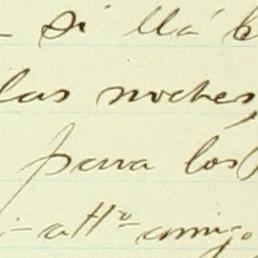 si
las noches,
para los
atto amigo